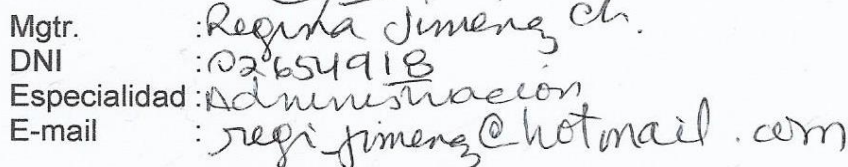 Mgtr. :Regina Jimenez Ch.
DNI :02654918
Especialidad :Administración
E-mail : regijimenez@hotmail.com